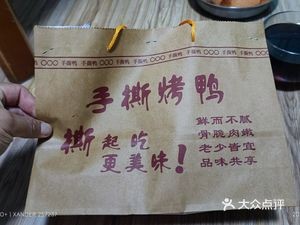 手撕鸭 〇〇〇 手撕鸭 〇〇〇 手撕鸭 〇〇〇 手撕鸭
手撕烤鸭
撕起吃
更美味!
鲜而不腻
骨脆肉嫩
老少皆宜
品味共享
大众点评
XANDER